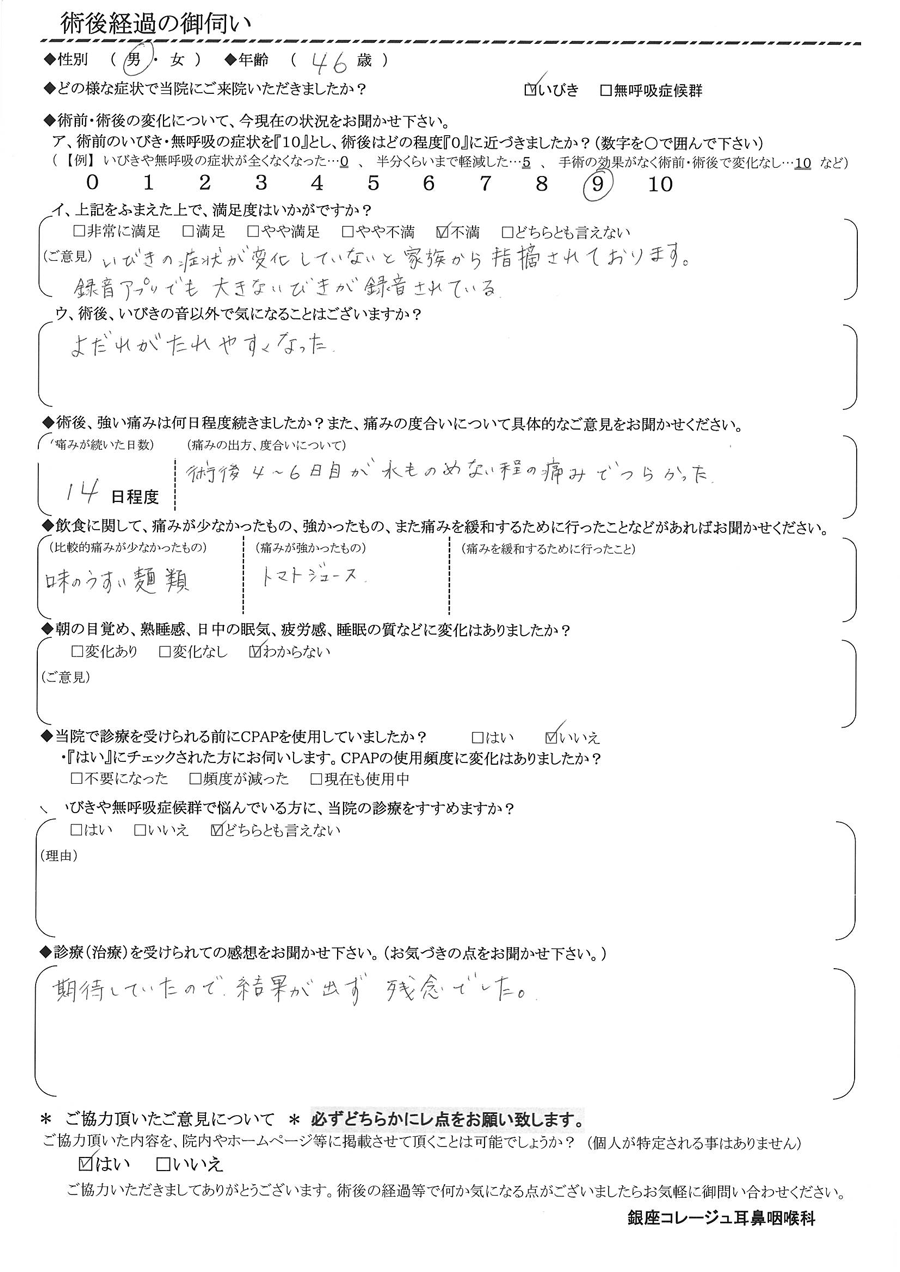 術後経過の御伺い
◆性別 （ 男 ・ 女 ） ◆年齢 （ 46 歳 ）
◆どの様な症状で当院にご来院いただきましたか？ ☑いびき □無呼吸症候群
◆術前・術後の変化について、今現在の状況をお聞かせ下さい。
ア、術前のいびき・無呼吸の症状を『10』とし、術後はどの程度『0』に近づきましたか？（数字を〇で囲んで下さい）
（ 【例】 いびきや無呼吸の症状が全くなくなった…0 、 半分くらいまで軽減した…5 、 手術の効果がなく術前・術後で変化なし…10 など）
0 1 2 3 4 5 6 7 8 9 10
イ、上記をふまえた上で、満足度はいかがですか？
□非常に満足 □満足 □やや満足 □やや不満 ☑不満 □どちらとも言えない
（ご意見） いびきの症状が変化していないと家族から指摘されております。
録音アプリでも大きないびきが録音されている
ウ、術後、いびきの音以外で気になることはございますか？
よだれがたれやすくなった.
◆術後、強い痛みは何日程度続きましたか？また、痛みの度合いについて具体的なご意見をお聞かせください。
痛みが続いた日数） （痛みの出方、度合いについて）
術後4～6日目が水ものめない程の痛みでつらかった.
14 日程度
◆飲食に関して、痛みが少なかったもの、強かったもの、また痛みを緩和するために行ったことなどがあればお聞かせください。
（比較的痛みが少なかったもの） （痛みが強かったもの） （痛みを緩和するために行ったこと）
味のうすい麺類 トマトジュース.
◆朝の目覚め、熟睡感、日中の眠気、疲労感、睡眠の質などに変化はありましたか？
□変化あり □変化なし ☑わからない
（ご意見）
◆当院で診療を受けられる前にCPAPを使用していましたか？ □はい ☑いいえ
・『はい』にチェックされた方にお伺いします。CPAPの使用頻度に変化はありましたか？
□不要になった □頻度が減った □現在も使用中
いびきや無呼吸症候群で悩んでいる方に、当院の診療をすすめますか？
□はい □いいえ ☑どちらとも言えない
（理由）
◆診療（治療）を受けられての感想をお聞かせ下さい。（お気づきの点をお聞かせ下さい。）
期待していたので、結果が出ず 残念でした。
＊ ご協力頂いたご意見について ＊ 必ずどちらかにレ点をお願い致します。
ご協力頂いた内容を、院内やホームページ等に掲載させて頂くことは可能でしょうか？（個人が特定される事はありません）
☑はい □いいえ
ご協力いただきましてありがとうございます。術後の経過等で何か気になる点がございましたらお気軽に御問い合わせください。
銀座コレージュ耳鼻咽喉科